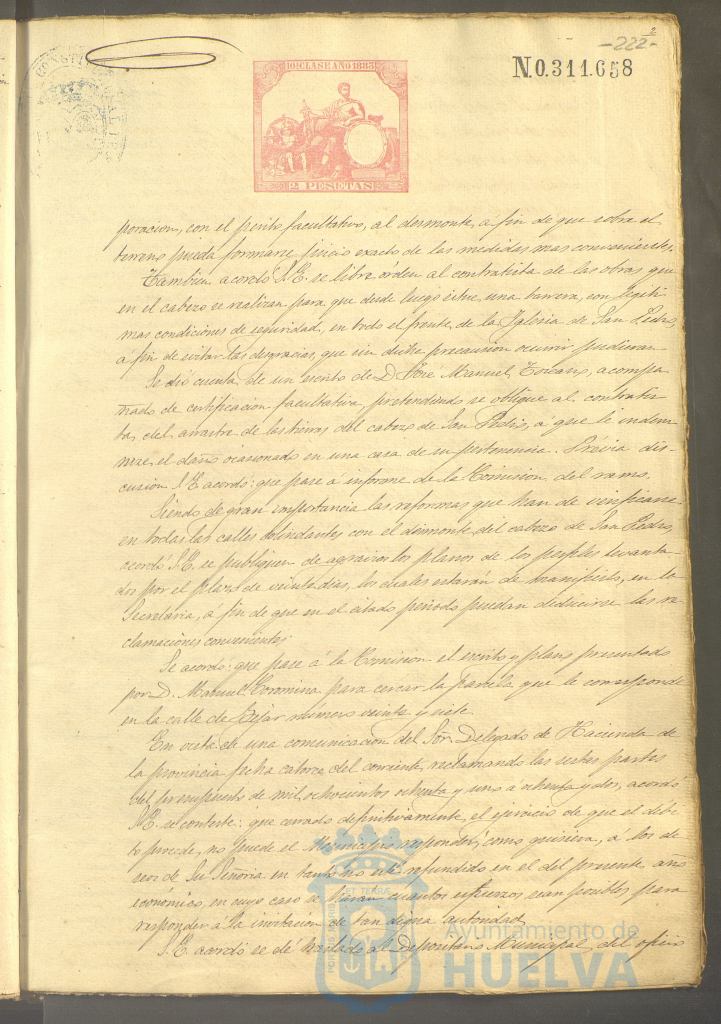 2
-222-
N.0.311.658
CONSTITUCIONAL
10ª CLASE AÑO 1883
2 PESETAS
poracion, con el perito facultativo, al desmonte, a fin de que sobre el
terreno pueda formarse juicio exacto de las medidas mas convenientes.
Tambien acordó S.E. se libre orden al contratista de las obras que
en el cabezo se realizan para que desde luego situe, una barrera, con legiti
mas condiciones de seguridad, en todo el frente, de la Iglesia de San Pedro,
a fin de evitar las desgracias, que sin dicha precaucion ocurrir pudieran
Se dió cuenta de un escrito de D. José Manuel Toscano, acompa
ñado de certificacion facultativa pretendiendo se obligue al contratis
ta del arrastre de las tierras del cabezo de San Pedro, á que le indem
nize, el daño ocasionado en una casa de su pertenencia. Prévia dis-
cusion S.E. acordó: que pase a informe de la Comision del ramo.
Siendo de gran importancia las reformas que han de verificarse
en todas las calles colindantes con el desmonte, del cabezo de San Pedro,
acordó S.E. se publiquen de agravios los planos de los perfiles levanta-
dos por el plazo de veinte dias, los cuales estarán de manifiesto, en la
Secretaria, a fin de que en el citado periodo puedan deducirse las re
clamaciones convenientes.
Se acordó: que pase á la Comision el escrito y plano presentado
por D. Manuel Coromina para cercar la parcela que le corresponde
en la calle de Bejar número veinte y siete.
En vista de una comunicacion del Sor. Delegado de Hacienda de
la provincia fecha catorce del corriente, reclamando las sestas partes
del presupuesto de mil ochocientos ochenta y uno á ochenta y dos, acordó
S.E. se conteste: que cerrado definitivamente, el ejercicio de que el debi
to procede, no puede el Municipio responder, como quisiera, á los de
seos de Su Señoria en tanto no esté refundido en el del presente año
económico, en cuyo caso se harán cuantos esfuerzos sean posibles para
responder á la invitacion de tan digna autoridad.
S.E. acordó se dé traslado al Depositario Municipal, del oficio
Ayuntamiento de
HUELVA